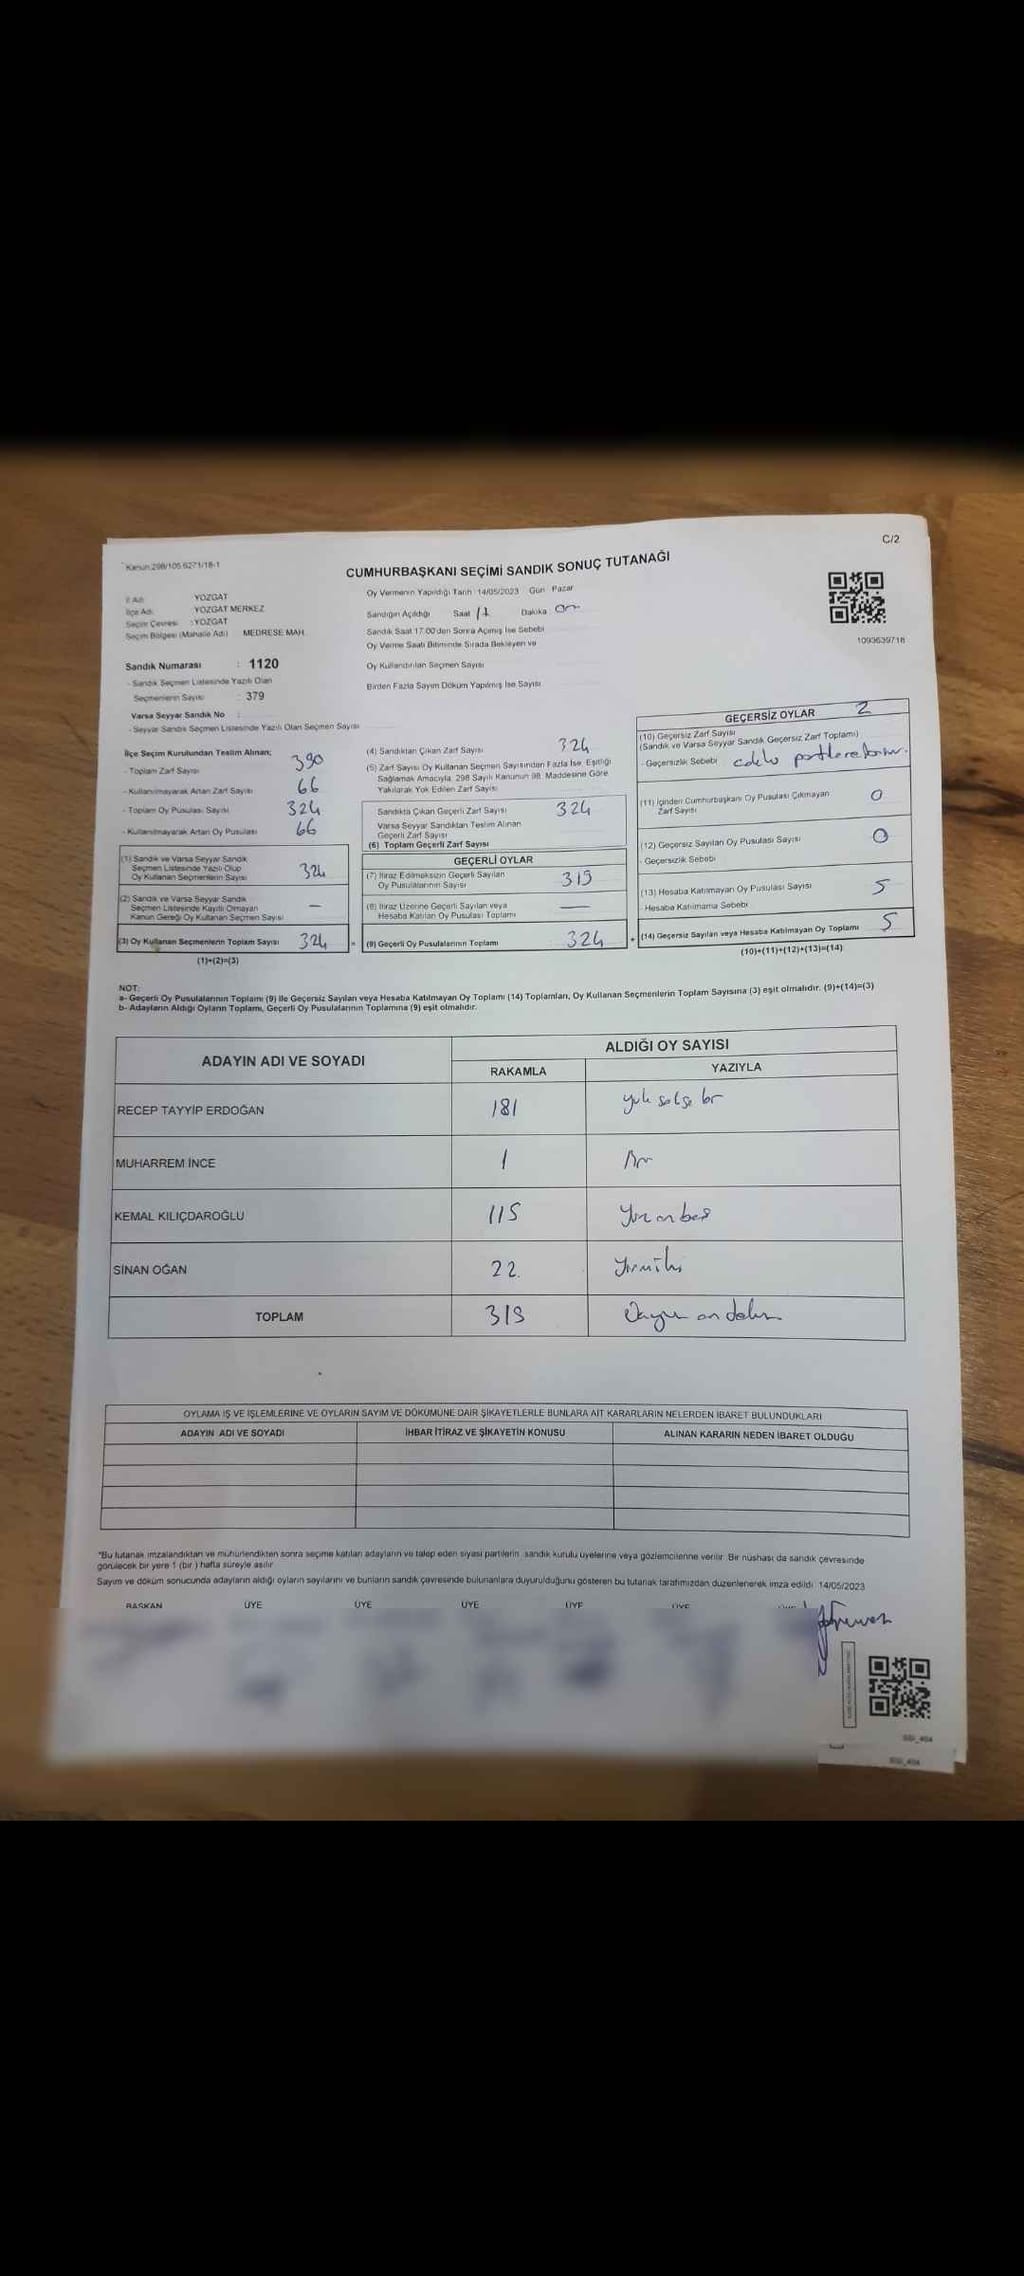 C/2
Kanun:298/105 6271/18-1
CUMHURBAŞKANI SEÇİMİ SANDIK SONUÇ TUTANAĞI
İl Adı : YOZGAT
İlçe Adı : YOZGAT MERKEZ
Seçim Çevresi : YOZGAT
Seçim Bölgesi (Mahalle Adı) MEDRESE MAH.
Oy Vermenin Yapıldığı Tarih 14/05/2023 Gün Pazar
Sandığın Açıldığı Saat 17 Dakika on
Sandık Saat 17.00'den Sonra Açılmış İse Sebebi
Oy Verme Saati Bitiminde Sırada Bekleyen ve
Oy Kullandırılan Seçmen Sayısı
Birden Fazla Sayım Döküm Yapılmış İse Sayısı
1093639718
Sandık Numarası : 1120
- Sandık Seçmen Listesinde Yazılı Olan
Seçmenlerin Sayısı : 379
Varsa Seyyar Sandık No :
- Seyyar Sandık Seçmen Listesinde Yazılı Olan Seçmen Sayısı
İlçe Seçim Kurulundan Teslim Alınan;
- Toplam Zarf Sayısı 390
- Kullanılmayarak Artan Zarf Sayısı 66
- Toplam Oy Pusulası Sayısı 324
- Kullanılmayarak Artan Oy Pusulası 66
(1) Sandık ve Varsa Seyyar Sandık
Seçmen Listesinde Yazılı Olup
Oy Kullanan Seçmenlerin Sayısı 324
(2) Sandık ve Varsa Seyyar Sandık
Seçmen Listesinde Kayıtlı Olmayan
Kanun Gereği Oy Kullanan Seçmen Sayısı —
(3) Oy Kullanan Seçmenlerin Toplam Sayısı 324
(1)+(2)=(3)
(4) Sandıktan Çıkan Zarf Sayısı 324
(5) Zarf Sayısı Oy Kullanan Seçmen Sayısından Fazla İse, Eşitliği
Sağlamak Amacıyla, 298 Sayılı Kanunun 98. Maddesine Göre
Yakılarak Yok Edilen Zarf Sayısı
Sandıkta Çıkan Geçerli Zarf Sayısı 324
Varsa Seyyar Sandıktan Teslim Alınan
Geçerli Zarf Sayısı
(6) Toplam Geçerli Zarf Sayısı
GEÇERLİ OYLAR
(7) İtiraz Edilmeksizin Geçerli Sayılan
Oy Pusulalarının Sayısı 319
(8) İtiraz Üzerine Geçerli Sayılan veya
Hesaba Katılan Oy Pusulası Toplamı —
= (9) Geçerli Oy Pusulalarının Toplamı 324
GEÇERSİZ OYLAR 2
(10) Geçersiz Zarf Sayısı
(Sandık ve Varsa Seyyar Sandık Geçersiz Zarf Toplamı)
- Geçersizlik Sebebi
(11) İçinden Cumhurbaşkanı Oy Pusulası Çıkmayan
Zarf Sayısı 0
(12) Geçersiz Sayılan Oy Pusulası Sayısı 0
- Geçersizlik Sebebi
(13) Hesaba Katılmayan Oy Pusulası Sayısı 5
- Hesaba Katılmama Sebebi
+ (14) Geçersiz Sayılan veya Hesaba Katılmayan Oy Toplamı 5
(10)+(11)+(12)+(13)=(14)
NOT:
a- Geçerli Oy Pusulalarının Toplamı (9) ile Geçersiz Sayılan veya Hesaba Katılmayan Oy Toplamı (14) Toplamları, Oy Kullanan Seçmenlerin Toplam Sayısına (3) eşit olmalıdır. (9)+(14)=(3)
b- Adayların Aldığı Oyların Toplamı, Geçerli Oy Pusulalarının Toplamına (9) eşit olmalıdır.
ADAYIN ADI VE SOYADI
ALDIĞI OY SAYISI
RAKAMLA YAZIYLA
RECEP TAYYİP ERDOĞAN 181
MUHARREM İNCE 1 Bir
KEMAL KILIÇDAROĞLU 115 Yüz onbeş
SİNAN OĞAN 22 Yirmiiki
TOPLAM 319
OYLAMA İŞ VE İŞLEMLERİNE VE OYLARIN SAYIM VE DÖKÜMÜNE DAİR ŞİKAYETLERLE BUNLARA AİT KARARLARIN NELERDEN İBARET BULUNDUKLARI
ADAYIN ADI VE SOYADI İHBAR İTİRAZ VE ŞİKAYETİN KONUSU ALINAN KARARIN NEDEN İBARET OLDUĞU
*Bu tutanak imzalandıktan ve mühürlendikten sonra seçime katılan adayların ve talep eden siyasi partilerin sandık kurulu üyelerine veya gözlemcilerine verilir. Bir nüshası da sandık çevresinde
görülecek bir yere 1 (bir) hafta süreyle asılır
Sayım ve döküm sonucunda adayların aldığı oyların sayılarını ve bunların sandık çevresinde bulunanlara duyurulduğunu gösteren bu tutanak tarafımızdan düzenlenerek imza edildi. 14/05/2023
BAŞKAN ÜYE ÜYE ÜYE ÜYE ÜYE